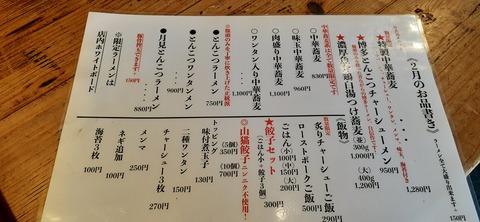 (2月のお品書き)
ラーメン全て大盛り出来ます +150
★特製中華蕎麦 1,280円
★博多とんこつチャーシューメン 950円
★濃厚魚鶏白湯つけ蕎麦
300g 1,000円
(大) 400g 1,200円
○中華蕎麦 830円
○味玉中華蕎麦 960円
○肉盛り中華蕎麦 1,100円
○ワンタン入り中華蕎麦 1,100円
●とんこつラーメン 750円
●とんこつワンタンメン 900円
●月見とんこつラーメン 880円
150円
※限定ラーメンは
店内ホワイトボード
《飯物》
炙りチャーシューご飯 290円
ローストポークご飯 500円
ごはん (小)100円 (中)150円 (大)200円
★餃子セット
(ごはん小+餃子3個) 300円
◎山猫餃子 ニンニク不使用!
(5個) 350円
(10個) 700円
トッピング
味付煮玉子 130円
二種ワンタン 150円
チャーシュー3枚 270円
メンマ 250円
ネギ追加 100円
海苔3枚 100円